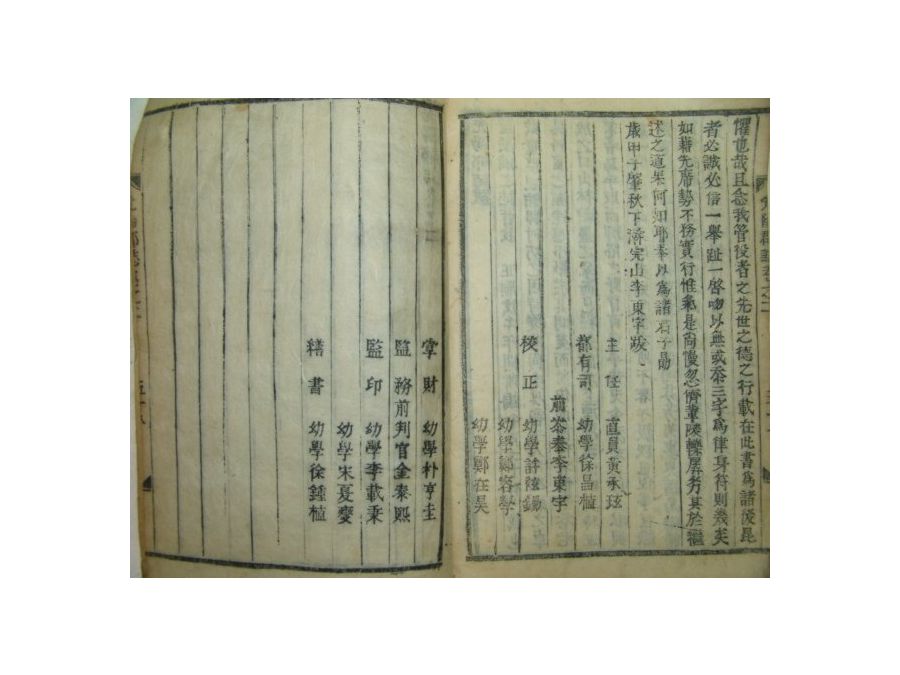 懼也哉且念我管役者之先世之德之行載在此書爲諸後昆
者必誠必信一擧趾一啓吻以無或忝三字爲律身符則幾矣
如藉先席勢不務實行惟氣是尙慢忽儕輩陵轢孱劣其於繼
述之道果何如耶奉以爲諸君子勗
歲甲子肇秋下澣完山李東宇跋
主任 直員黃承玹
都有司 幼學徐昌植
前參奉李東宇
校正 幼學許鉉
幼學鄭容學
幼學鄭在昊
掌財 幼學朴亨圭
監務前判官金泰熙
監印 幼學李載秉
幼學宋夏燮
繕書 幼學徐鍾植